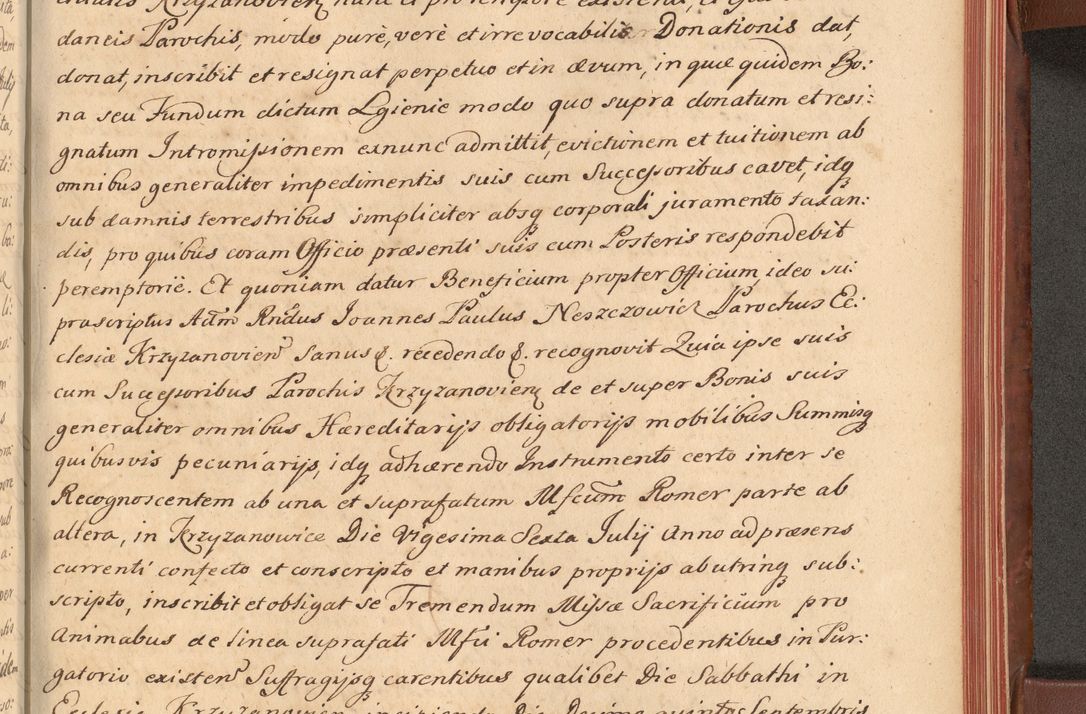 daneis Parochis, modo purè, verè et irrevocabilis Donationis dat,
donat, inscribit et resignat perpetuo et in ævum, in quæ quidem Bo:
na seu Fundum dictum Lgienie modo quo supra donatum et resi:
gnatum Intromissionem exnunc admittit, evictionem et tuitionem ab
omnibus generaliter impedimentis suis cum Successoribus cavet, idq
sub damnis terrestribus simpliciter absq corporali juramento taxan:
dis, pro quibus coram Officio præsenti suis cum Posteris respondebit
peremptorie. Et quoniam datur Beneficium propter Officium, ideo su:
præscriptus Adm Rndus Joannes Paulus Neszczowicz Parochus Ec:
clesiæ Krzyzanovien Sanus &. recedendo &. recognovit Quia ipse suis
cum Successoribus Parochis Krzyzanovien de et super Bonis suis
generaliter omnibus Hæreditarijs obligatorijs mobilibus Summisq
quibusvis pecuniarijs, idq adhærendo Instrumento certo inter se
Recognoscentem ab una et suprafatum Mfcum Romer parte ab
altera, in Krzyzanowice Die Vigesima Sexta Julij Anno ad præsens
currenti confecto et conscripto et manibus proprijs ab utrinq sub:
scripto, inscribit et obligat se Tremendum Missæ Sacrificium pro
Animabus de linea suprafati Mfci Romer procedentibus in Pur:
gatorio existen Suffragijsq carentibus qualibet Die Sabbathi in
Ecclesia Krzyzanovien incipiendo Die Decima quinta Septembris